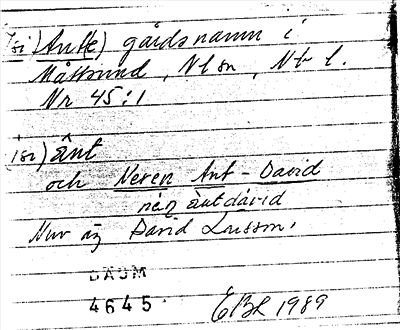 (si) Antte) gårdsnamn i
Måttsund, Nl sn, Nb l.
Nr 45:1
(si) änt
och Neren Ant-David
nęη äntdávid
Nuv äg David Larsson.
DAUM
4645.
EBL 1989